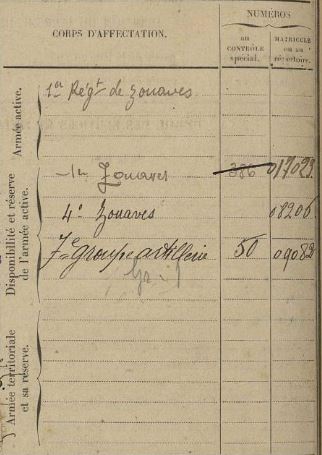 NUMÉROS
CORPS D'AFFECTATION.
AU CONTRÔLE spécial.
MATRICULE OU AU répertoire.
Armée active.
1er Régt de Zouaves
Disponibilité et réserve de l'armée active.
1er Zouaves 386 017023
4e Zouaves 08206
7e groupe artillerie 50 09082
Armée territoriale et sa réserve.